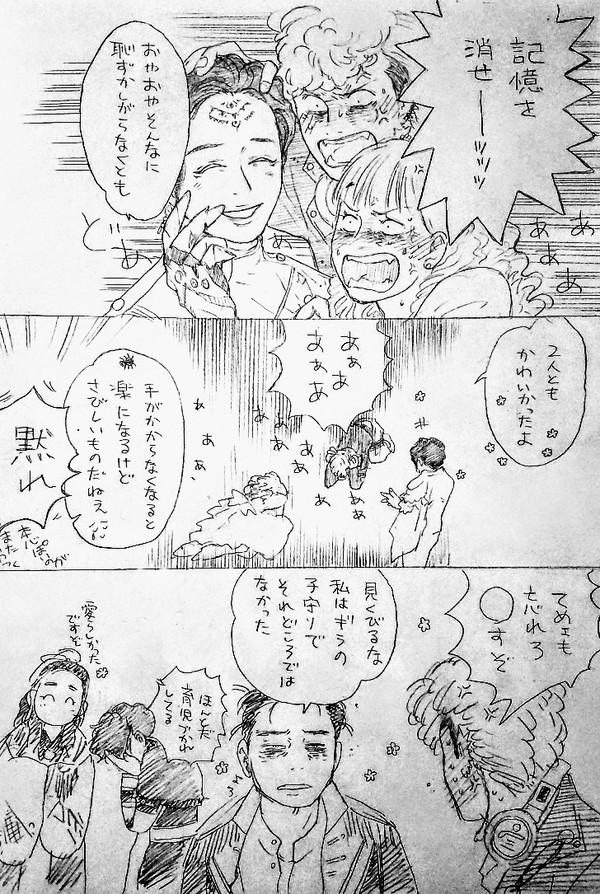 記憶を
消せーーッッッ
おやおやそんなに
恥ずかしがらなくとも
あ
ああああ
どあ
2人とも
かわいかったよ
あぁあ
あぁあ
あ
あ
あ
手がかからなくなると
楽になるけど
さびしいものだねえ
黙れ
てめェも
忘れろ
◯すぞ
見くびるな
私はギラの
子守りで
それどころでは
なかった
ほんとだ
育児づかれ
してる
愛らしかった
ですぞ